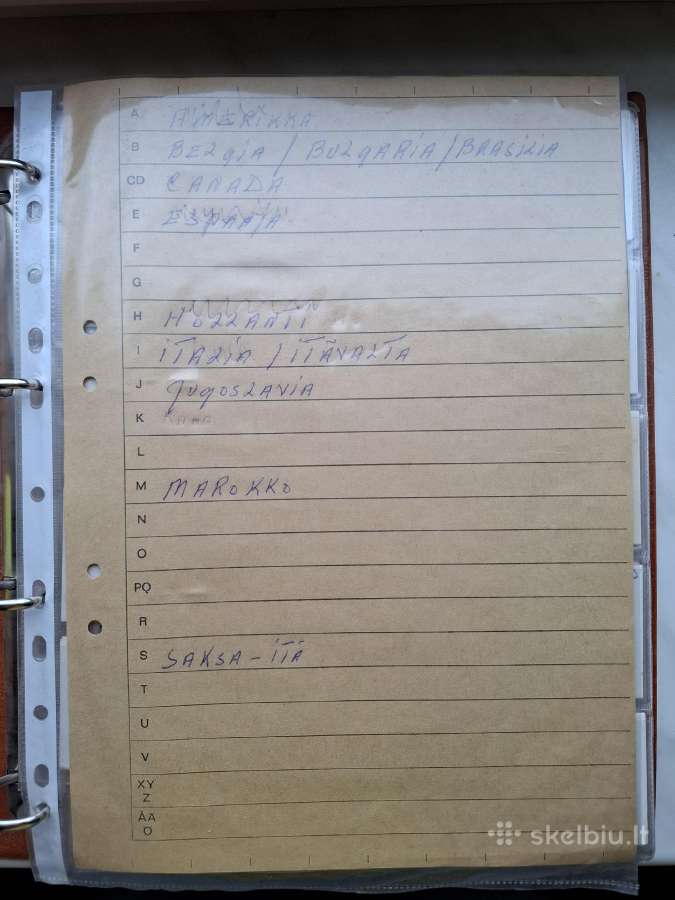 A AMERIKKA
B BELGIA / BULGARIA / BRASILIA
CD CANADA
E
F
G
H HOLLANTI
I ITALIA / ITÄVALTA
J Jugoslavia
K
L
M MAROKKO
N
O
PQ
R
S SAKSA - ITÄ
T
U
V
XY
Z
ÅÄ
Ö
skelbiu.lt